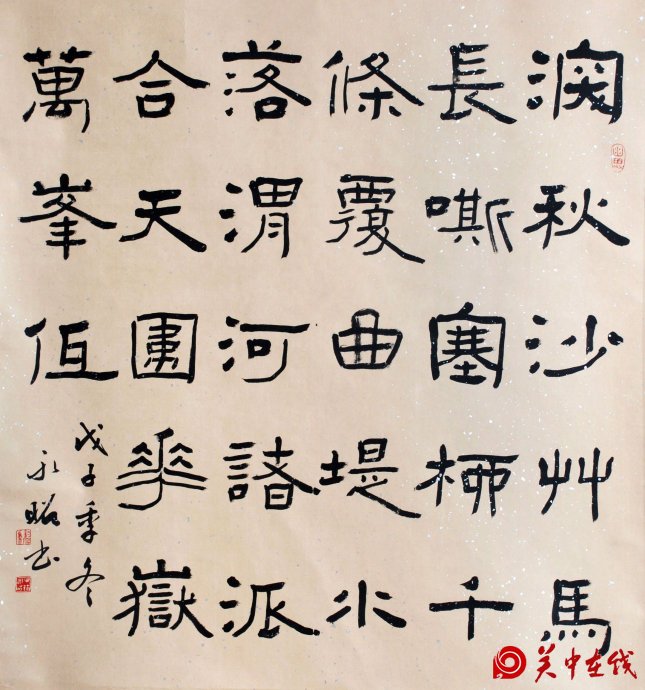 深秋沙艸馬
長嘶塞柳千
條覆曲堤水
落渭河諸派
合天圍華嶽
萬峯低
戊子季冬
永昭书
关中在线